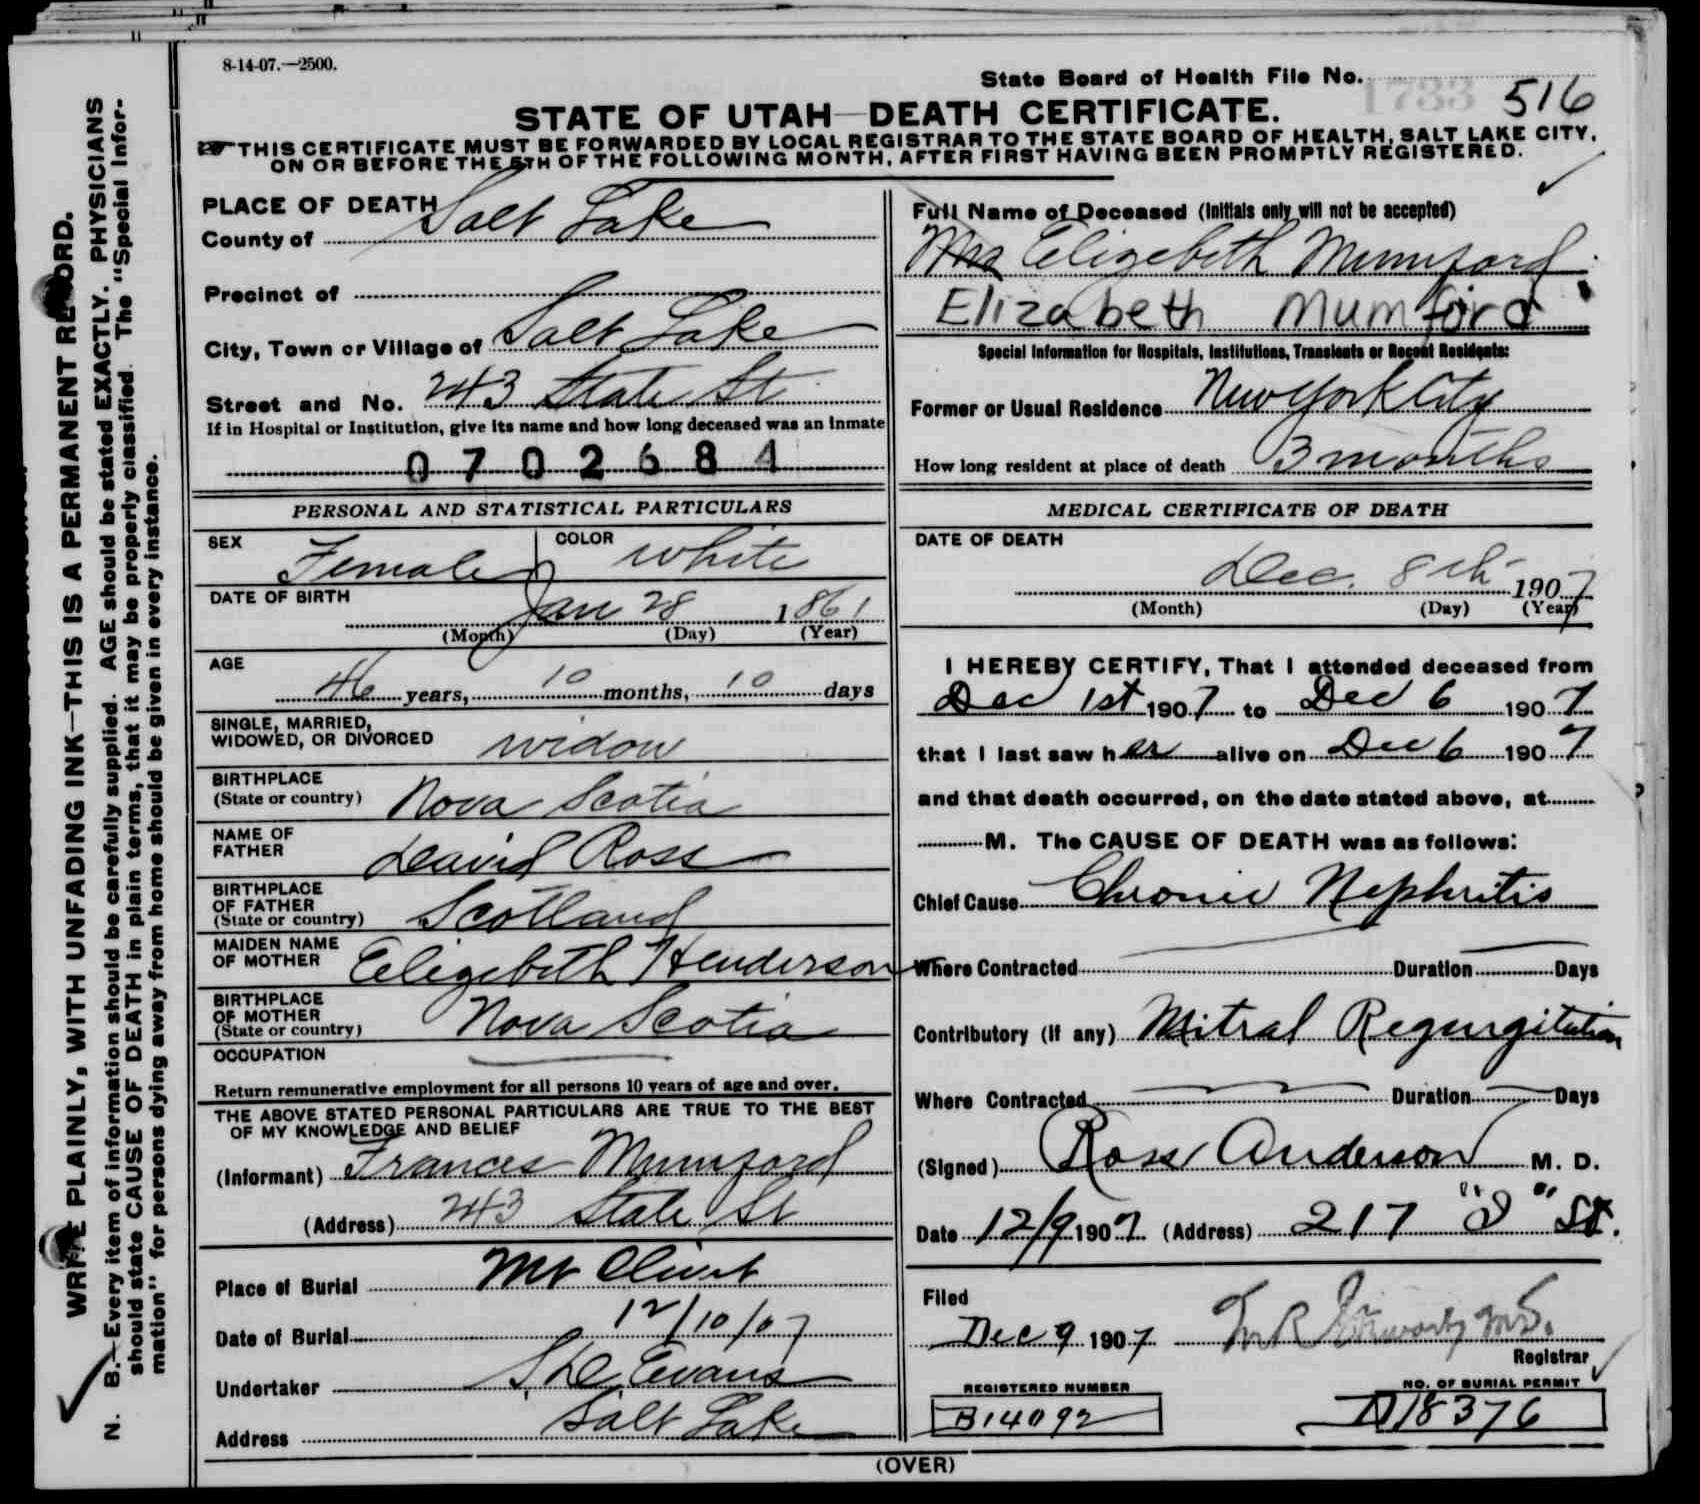 8-14-07.—2500.
State Board of Health File No. 1733 516
STATE OF UTAH—DEATH CERTIFICATE.
THIS CERTIFICATE MUST BE FORWARDED BY LOCAL REGISTRAR TO THE STATE BOARD OF HEALTH, SALT LAKE CITY,
ON OR BEFORE THE 5TH OF THE FOLLOWING MONTH, AFTER FIRST HAVING BEEN PROMPTLY REGISTERED.
PLACE OF DEATH
County of Salt Lake
Precinct of
City, Town or Village of Salt Lake
Street and No. 243 State St
If in Hospital or Institution, give its name and how long deceased was an Inmate
0702684
PERSONAL AND STATISTICAL PARTICULARS
SEX Female COLOR White
DATE OF BIRTH Jan 28 1861
(Month) (Day) (Year)
AGE
46 years, 10 months, 10 days
SINGLE, MARRIED,
WIDOWED, OR DIVORCED widow
BIRTHPLACE
(State or country) Nova Scotia
NAME OF
FATHER David Ross
BIRTHPLACE
OF FATHER
(State or country) Scotland
MAIDEN NAME
OF MOTHER Elizebeth Henderson
BIRTHPLACE
OF MOTHER
(State or country) Nova Scotia
OCCUPATION
Return remunerative employment for all persons 10 years of age and over.
THE ABOVE STATED PERSONAL PARTICULARS ARE TRUE TO THE BEST
OF MY KNOWLEDGE AND BELIEF
(Informant) Frances Mumford
(Address) 243 State St
Place of Burial Mt Olivet
Date of Burial 12/10/07
Undertaker Evans
Address Salt Lake
Full Name of Deceased (Initials only will not be accepted)
Mrs Elizebeth Mumford
Elizabeth Mumford
Special Information for Hospitals, Institutions, Transients or Recent Residents:
Former or Usual Residence New York City
How long resident at place of death 3 months
MEDICAL CERTIFICATE OF DEATH
DATE OF DEATH
Dec. 8th 1907
(Month) (Day) (Year)
I HEREBY CERTIFY, That I attended deceased from
Dec 1st 1907 to Dec 6 1907
that I last saw her alive on Dec 6 1907
and that death occurred, on the date stated above, at
M. The CAUSE OF DEATH was as follows:
Chief Cause Chronic Nephritis
Where Contracted Duration Days
Contributory (if any) Mitral Regurgitation
Where Contracted Duration Days
(Signed) Ross Anderson M. D.
Date 12/9 1907 (Address) 217 St.
Filed
Dec 9 1907
Registrar
REGISTERED NUMBER
B14092
NO. OF BURIAL PERMIT
D18376
(OVER)
WRITE PLAINLY, WITH UNFADING INK—THIS IS A PERMANENT RECORD.
N. B.—Every item of information should be carefully supplied. AGE should be stated EXACTLY. PHYSICIANS
should state CAUSE OF DEATH in plain terms, that it may be properly classified. The "Special Infor-
mation" for persons dying away from home should be given in every instance.